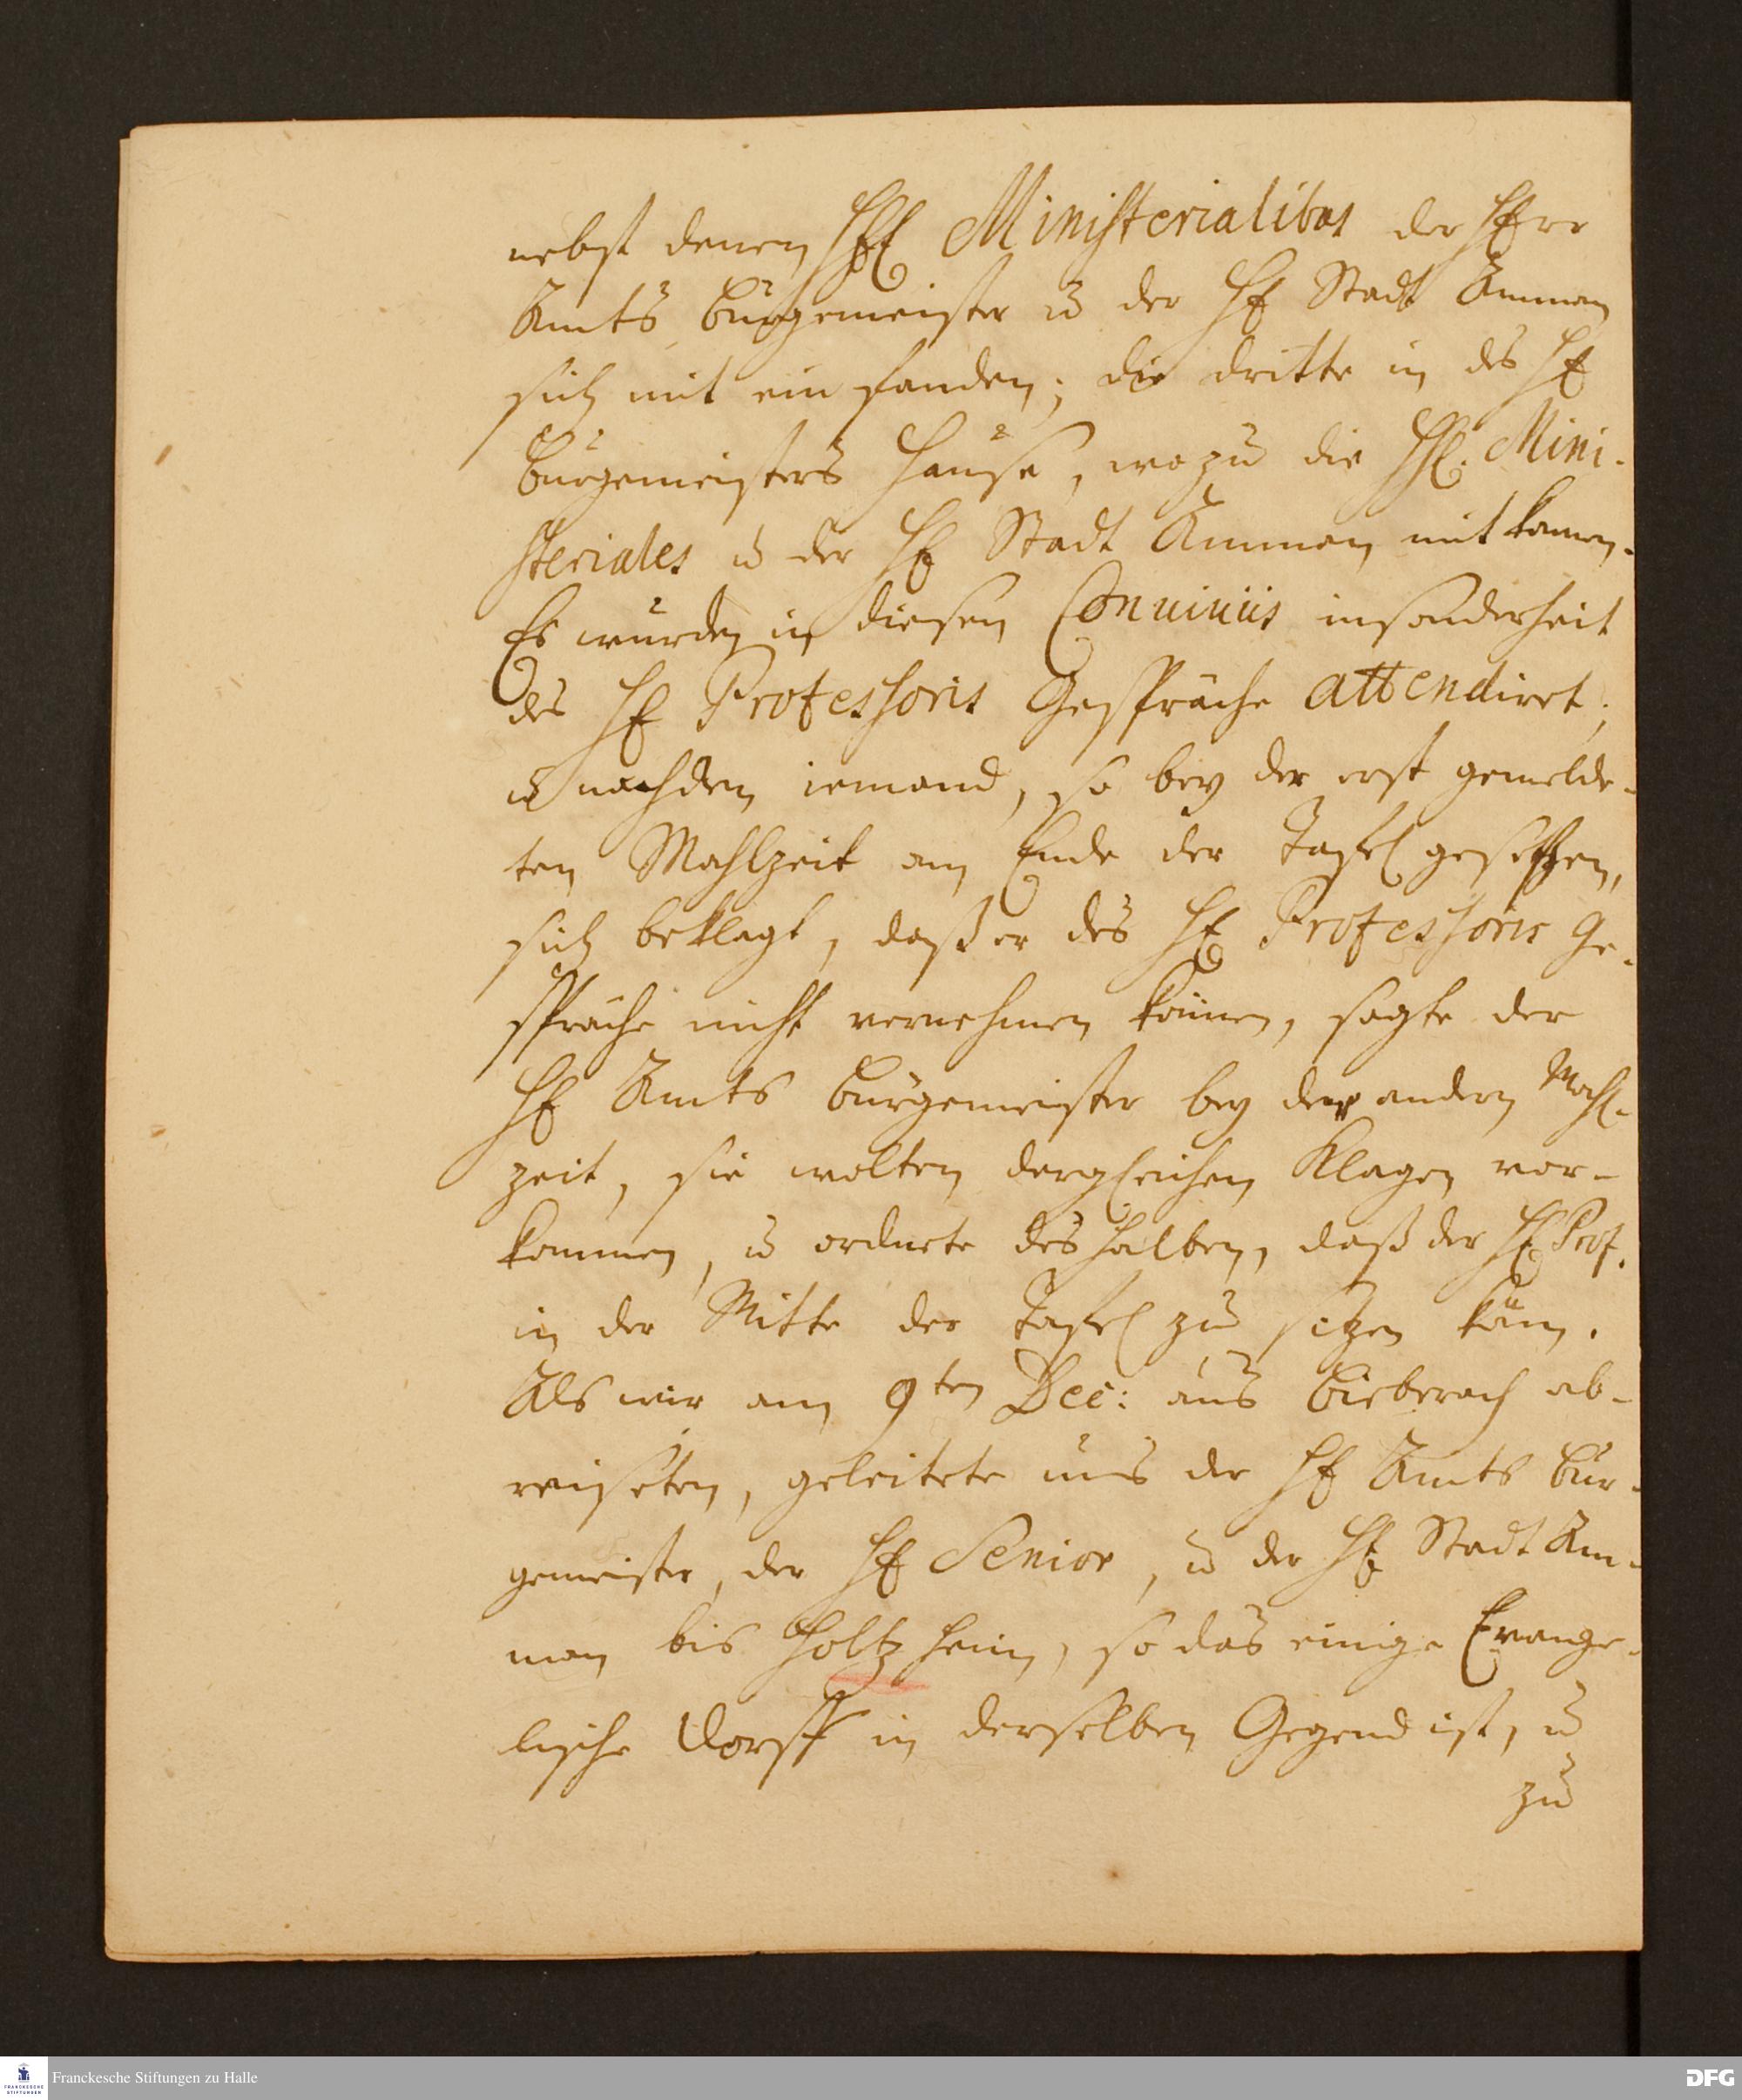 nebst denen HE. Ministerialibus der Herr
Amts Burgemeister u. der HE Stadt Amman
sich mit ein fanden; die dritte in des HE
Burgemeisters Hause, wozu die HE. Mini-
steriales u. der HE Stadt Amman mit kamen.
Es wurden in diesen Conviviis insonderheit
des HE Professoris Gespräche attendiret,
u. nachdem iemand, so bey der erst gemelde-
ten Mahlzeit am Ende der Tafel gesessen,
sich beklagt, daß er des HE Professoris Ge-
spräche nicht vernehmen können, sagte der
HE Amts Burgemeister bey der andern Mahl-
zeit, sie wolten dergleichen Klagen vor-
kommen, u. ordnete deshalben, daß der HE Prof.
in der Mitte der Tafel zu sitzen käm.
Als wir am 9ten Dec: aus Bieberach ab-
reiseten, geleitete uns der HE Amts Bur-
gemeister, der HE Senior, u. der HE Stadt Am-
man bis Holtzheim, so das einige Evange-
lische Dorff in derselben Gegend ist, u.
zu
Franckesche Stiftungen zu Halle
FRANCKESCHE STIFTUNGEN
DFG